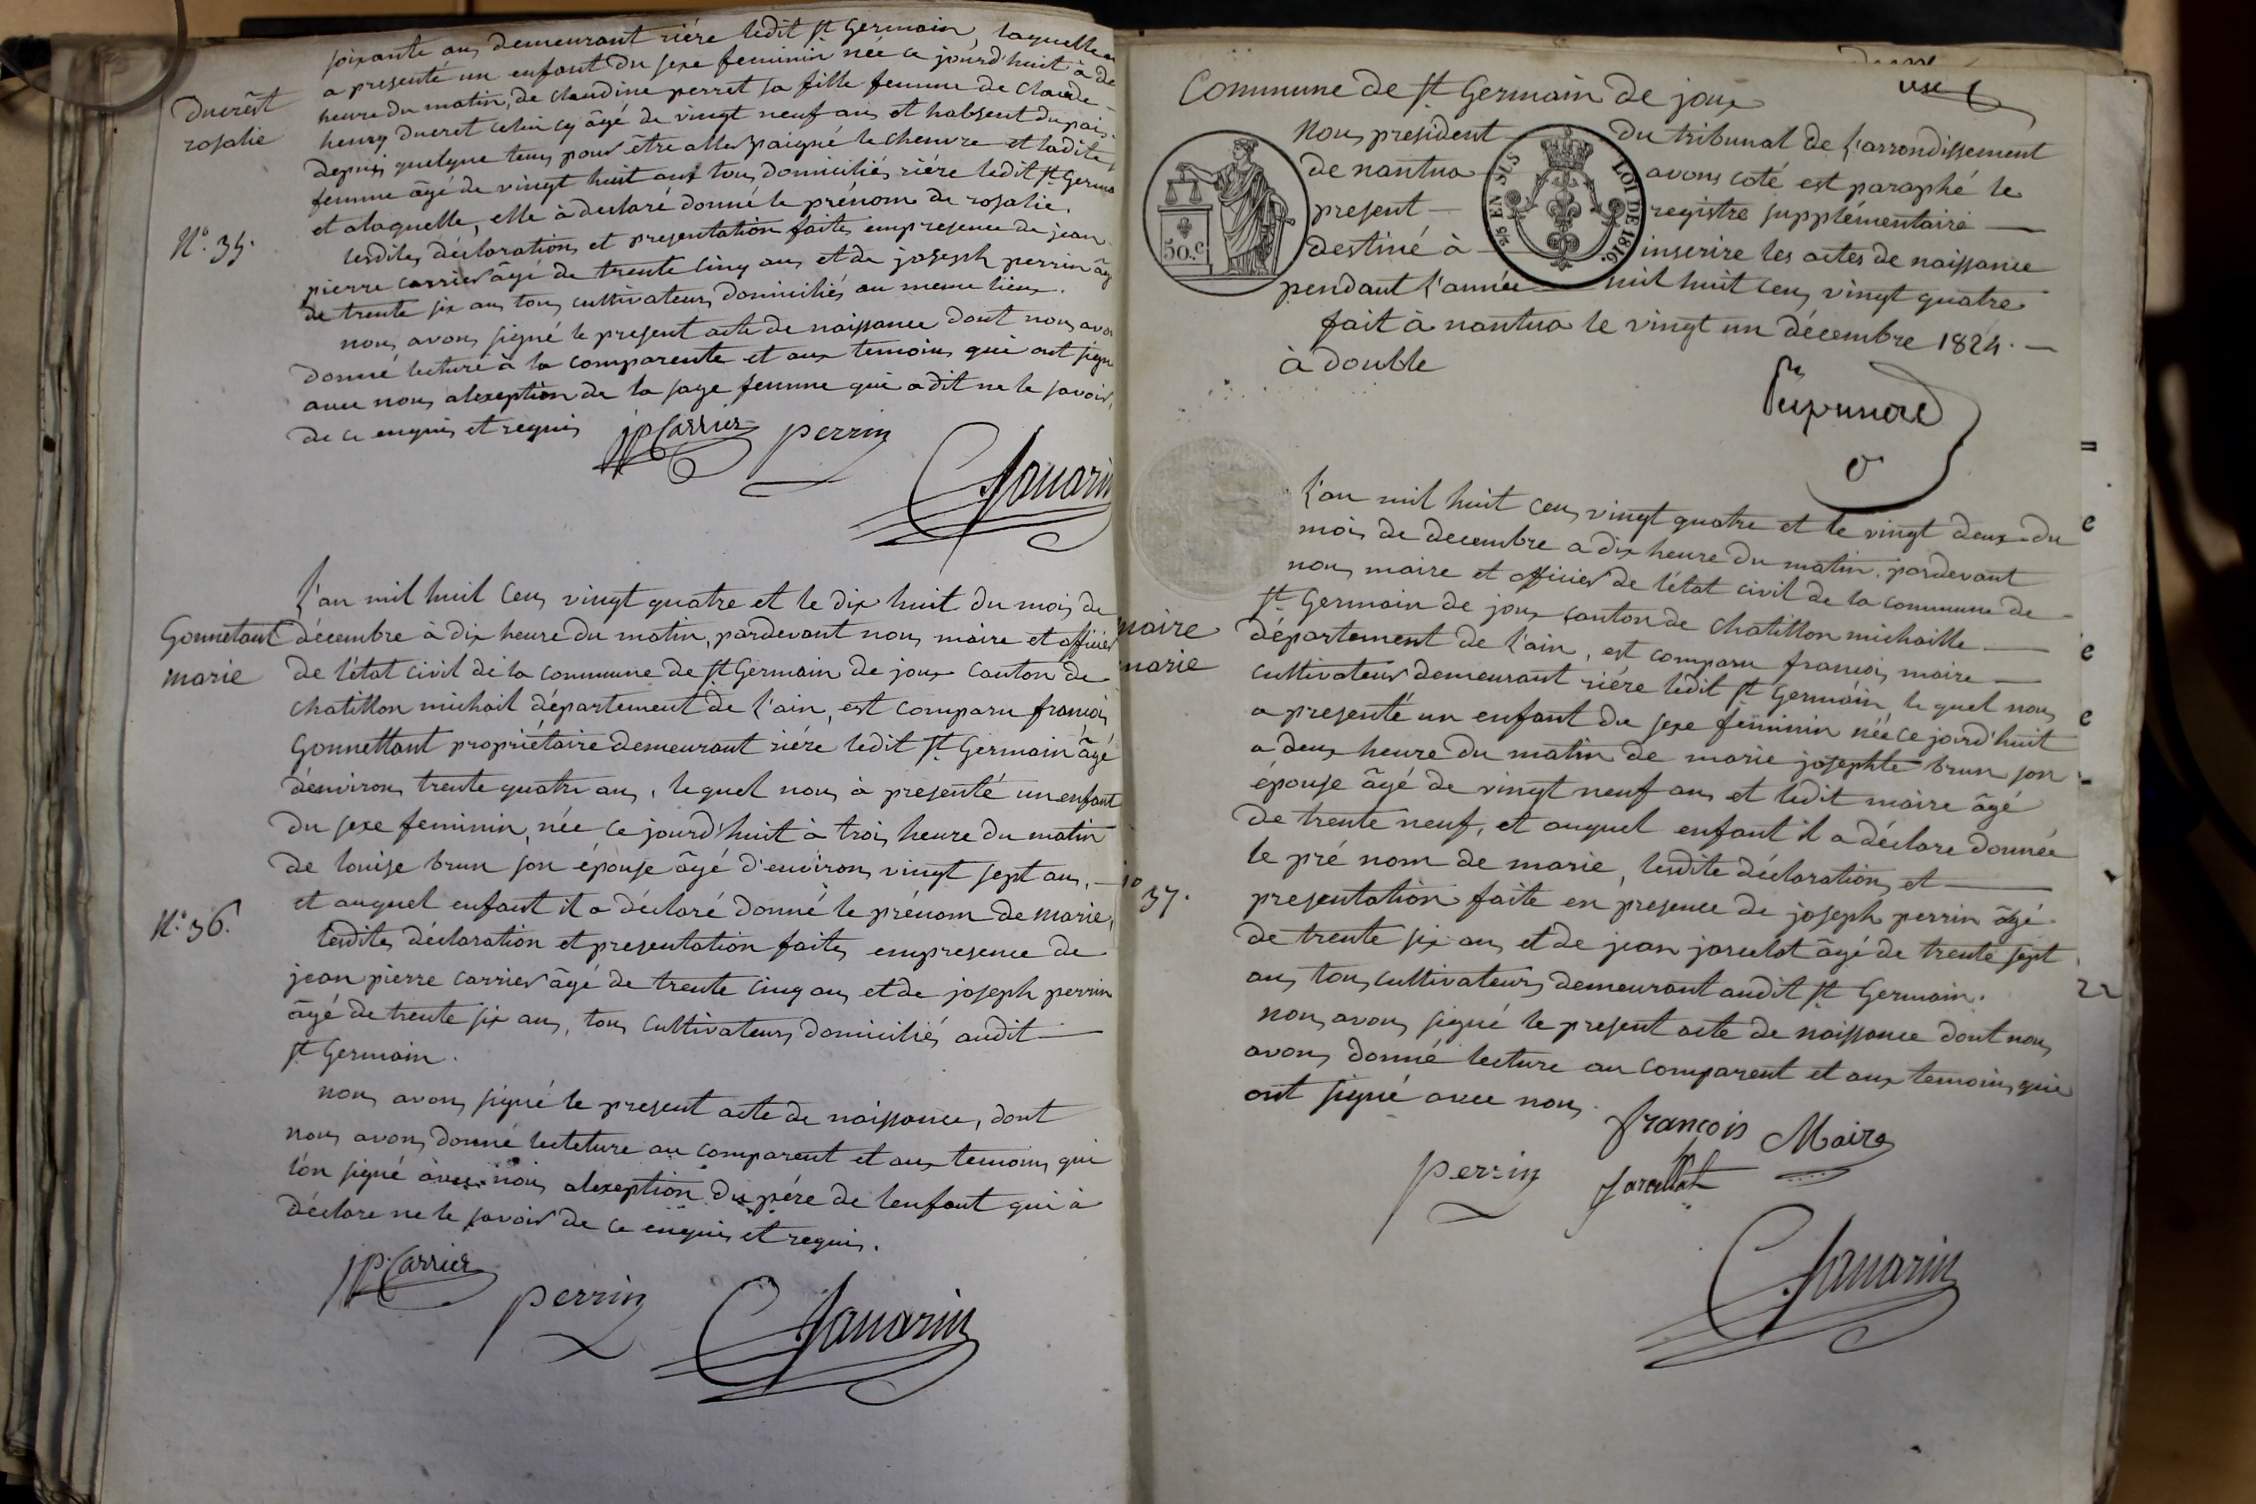 soixante ans demeurant riére ledit St Germain, laquelle
a presenté un enfant du sexe feminin née ce jourd'huit à
heure du matin, de claudine perret sa fille femme de claude
henry ducret celui cy âgé de vingt neuf ans et habsent du pais
depuis quelque tems pour être aller paigné le chenvre et ladite
femme âgé de vingt huit ans tous domiciliés riére ledit St Germ
et alaquelle, elle à declaré donné le prénom de rosalie.
Ducrêt
rosalie
N.o 35.
lesdites déclaration et presentation faites empresence de jean
pierre carrier âgé de trente cinq ans et de joseph perrin âg
de trente six ans tous cultivateurs domiciliés au meme lieux.
nous avons signé le present acte de naissance dont nous avo
donné lecture à la comparente et aux temoins qui ont sign
avec nous alexeption de la sage femme qui a dit ne le savoir,
de ce enquis et requis
JP Carrier
perrin
C Savarin
L'an mil huit cens vingt quatre et le dix huit du mois de
décembre à dix heure du matin, pardevant nous maire et officier
de l'état civil de la commune de St Germain de joux canton de
chatillon michail département de l'ain, est comparu françois
Gonnettant propriétaire demeurant riére ledit St Germain âgé
d'environs trente quatre ans, lequel nous à presenté un enfant
du sexe feminin, née ce jourd'huit à trois heure du matin
de louise brun son épouse âgé d'environs vingt sept ans,
et auquel enfant il a déclaré donné le prénom de marie,
Gonnetant
marie
N.o 36.
lesdites déclaration et presentation faites empresence de
jean pierre carrier âgé de trente cinq ans et de joseph perrin
âgé de trente six ans, tous cultivateurs domiciliés audit
St Germain.
nous avons signé le present acte de naissance, dont
nous avons donné lecteture au comparent et aux temoins qui
l'on signé avec nous alexeption du pére de lenfant qui à
déclare ne le savoir de ce enquis et requis.
JP Carrier
perrin
C Savarin
Commune de St Germain de joux
Nous president du tribunal de l'arrondissement
de nantua avons coté est paraphé le
present registre supplémentaire
destiné à inscrire les actes de naissance
pendant l'année mil huit cens vingt quatre
fait à nantua le vingt un décembre 1824.
à double
50.c
5/5 EN SUS
LOI DE 1816.
L'an mil huit cens vingt quatre et le vingt deux du
mois de decembre a dix heure du matin, pardevant
nous maire et officier de l'état civil de la commune de
St Germain de joux canton de chatillon michaille
département de l'ain, est comparu françois maire
cultivateur demeurant riére ledit St Germain, le quel nous
a presenté un enfant du sexe féminin née ce jourd'huit
a deux heure du matin de marie josephte brun son
épouse âgé de vingt neuf ans et ledit maire âgé
de trente neuf, et auquel enfant il a déclare donnée
le pré nom de marie, lesdite déclaration, et
presentation faite en presence de joseph perrin âgé
de trente six ans et de jean jarcelot âgé de trente sept
ans tous cultivateurs demeurant audit St Germain.
maire
marie
37.
nous avons signé le present acte de naissance dont nous
avons donné lecture au comparent et aux temoins qui
ont signé avec nous.
françois Maire
perrin
Jarcellot
C Savarin
22